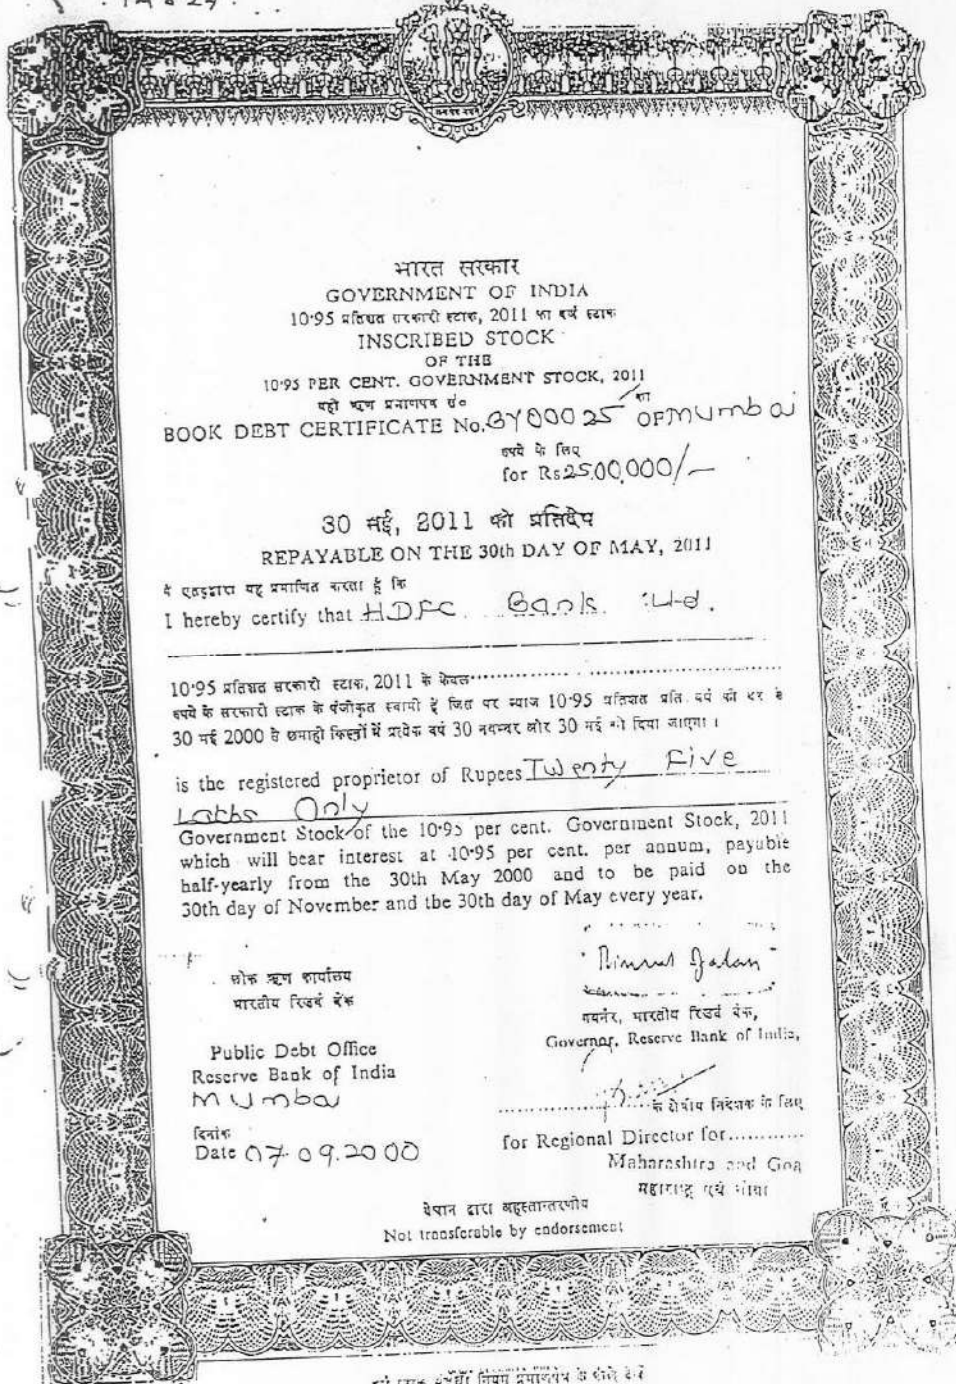 भारत सरकार
GOVERNMENT OF INDIA
10·95 प्रतिशत सरकारी स्टाक, 2011 का दर्ज स्टाक
INSCRIBED STOCK
OF THE
10·95 PER CENT. GOVERNMENT STOCK, 2011
बही ऋण प्रमाणपत्र सं० का
BOOK DEBT CERTIFICATE No. BY00025 OF Mumbai
रुपये के लिए
for Rs 25,00,000/-
30 मई, 2011 को प्रतिदेय
REPAYABLE ON THE 30th DAY OF MAY, 2011
मैं एतद्द्वारा यह प्रमाणित करता हूँ कि
I hereby certify that HDFC Bank Ltd.
10·95 प्रतिशत सरकारी स्टाक, 2011 के केवल
रुपये के सरकारी स्टाक के पंजीकृत स्वामी हैं जिस पर ब्याज 10·95 प्रतिशत प्रति वर्ष की दर से
30 मई 2000 से छमाही किस्तों में प्रत्येक वर्ष 30 नवम्बर और 30 मई को दिया जाएगा ।
is the registered proprietor of Rupees Twenty Five
Lakhs Only
Government Stock of the 10·95 per cent. Government Stock, 2011
which will bear interest at 10·95 per cent. per annum, payable
half-yearly from the 30th May 2000 and to be paid on the
30th day of November and the 30th day of May every year.
लोक ऋण कार्यालय
भारतीय रिजर्व बैंक
Bimal Jalan
गवर्नर, भारतीय रिजर्व बैंक,
Governor, Reserve Bank of India,
Public Debt Office
Reserve Bank of India
Mumbai
के क्षेत्रीय निदेशक के लिए
दिनांक
Date 07.09.2000
for Regional Director for............
Maharashtra and Goa
महाराष्ट्र एवं गोवा
बेचान द्वारा अहस्तान्तरणीय
Not transferable by endorsement